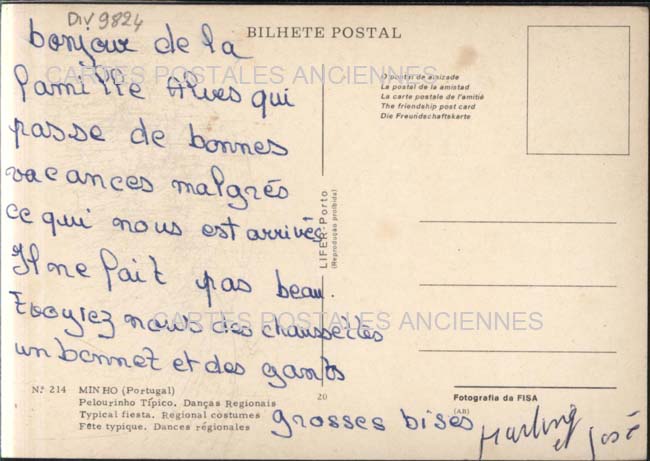 DIV 9824
BILHETE POSTAL
bonjour de la
famille Alves qui
passe de bonnes
vacances malgrés
ce qui nous est arrivés
Il ne fait pas beau.
Envoyiez nous des chaussettes
un bonnet et des gants
grosses bises
et José
CARTES POSTALES ANCIENNES
CARTES POSTALES ANCIENNES
O postal de amizade
La postal de la amistad
La carte postale de l'amitié
The friendship post card
Die Freundschaftskarte
LIFER-Porto
(Reprodução proibida)
N.º 214 MINHO (Portugal)
Pelourinho Típico. Danças Regionais
Typical fiesta. Regional costumes
Fête typique. Dances régionales
20
Fotografia da FISA
(AB)